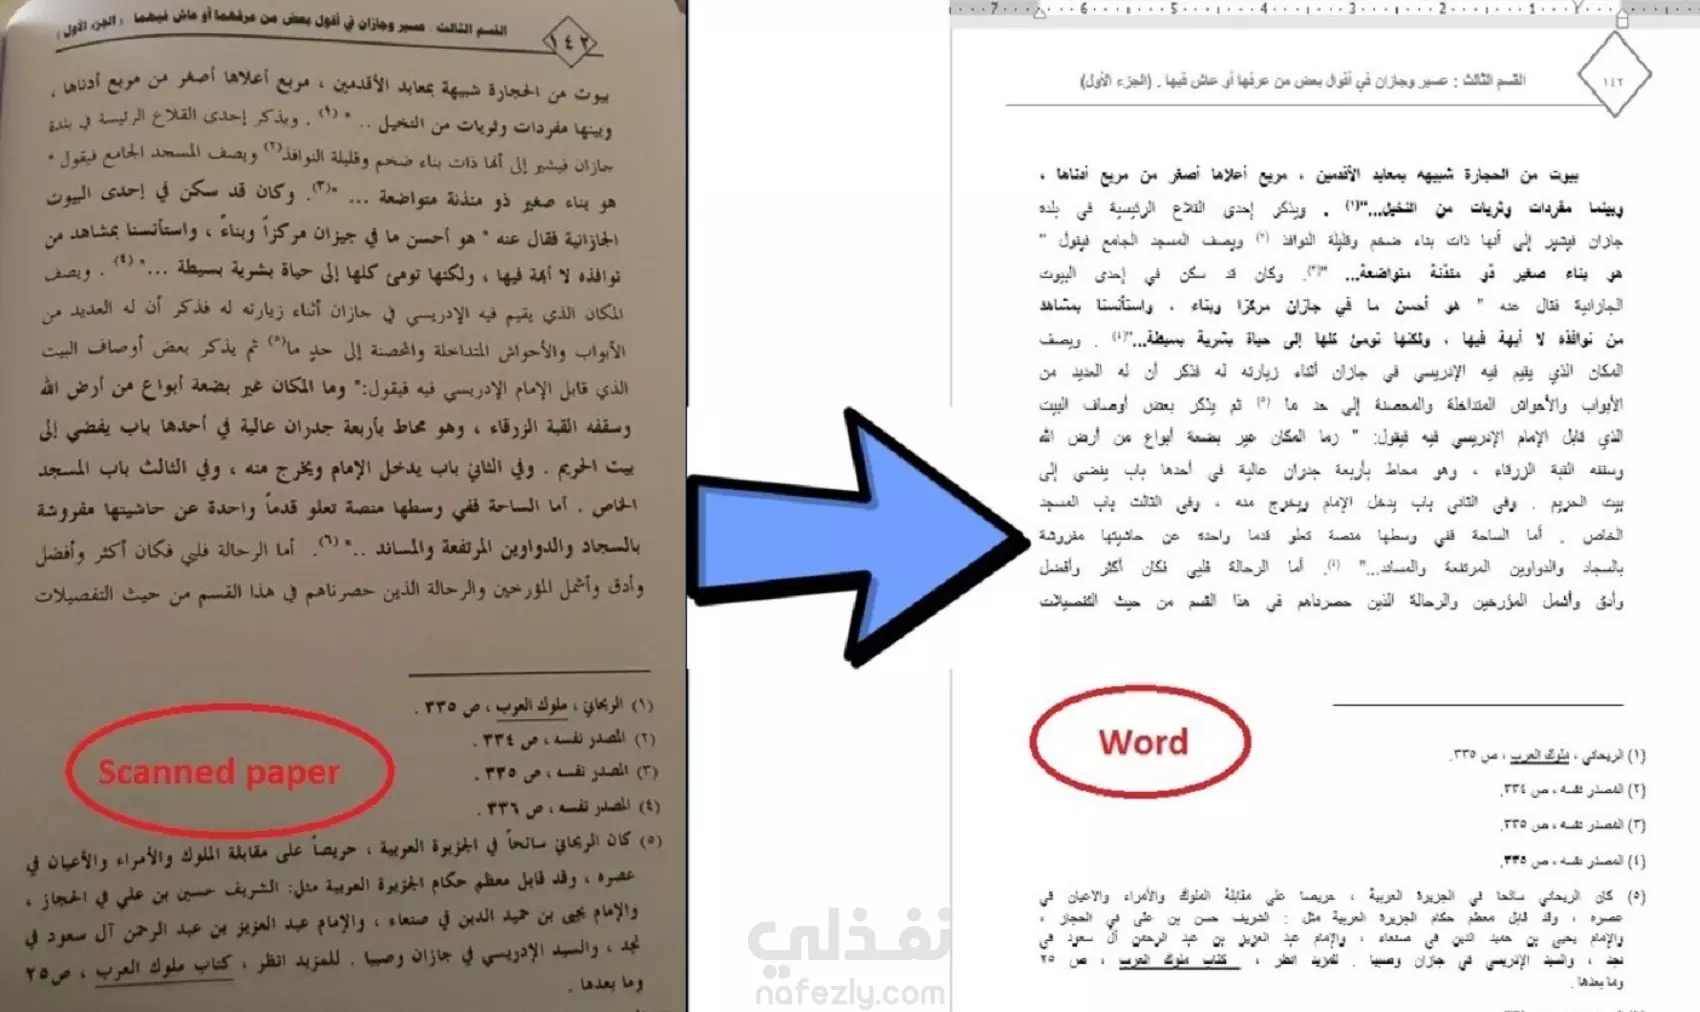 القسم الثالث : عسير وجازان في أقوال بعض من عرفهما أو عاش فيهما ( الجزء الأول )
١٤٢
بيوت من الحجارة شبيهة بمعابد الأقدمين ، مربع أعلاها أصغر من مربع أدناها ،
وبينها مفردات وثريات من النخيل .. " (١) . ويذكر إحدى القلاع الرئيسة في بلدة
جازان فيشير إلى أنها ذات بناء ضخم وقليلة النوافذ(٢) ويصف المسجد الجامع فيقول "
هو بناء صغير ذو مئذنة متواضعة ... "(٣). وكان قد سكن في إحدى البيوت
الجازانية فقال عنه " هو أحسن ما في جيزان مركزاً وبناءً ، واستأنسنا بمشاهد من
نوافذه لا أبهة فيها ، ولكنها تومئ كلها إلى حياة بشرية بسيطة ..." (٤) . ويصف
المكان الذي يقيم فيه الإدريسي في جازان أثناء زيارته له فذكر أن له العديد من
الأبواب والأحواش المتداخلة والمحصنة إلى حدٍ ما(٥) ثم يذكر بعض أوصاف البيت
الذي قابل الإمام الإدريسي فيه فيقول:" وما المكان غير بضعة أبواع من أرض الله
وسقفه القبة الزرقاء ، وهو محاط بأربعة جدران عالية في أحدها باب يفضي إلى
بيت الحريم . وفي الثاني باب يدخل الإمام ويخرج منه ، وفي الثالث باب المسجد
الخاص . أما الساحة ففي وسطها منصة تعلو قدماً واحدة عن حاشيتها مفروشة
بالسجاد والدواوين المرتفعة والمساند .. " (٦). أما الرحالة فلبي فكان أكثر وأفضل
وأدق وأشمل المؤرخين والرحالة الذين حصرناهم في هذا القسم من حيث التفصيلات
(١) الريحاني ، ملوك العرب ، ص ٣٣٥ .
(٢) المصدر نفسه ، ص ٣٣٤ .
(٣) المصدر نفسه ، ص ٣٣٥ .
(٤) المصدر نفسه ، ص ٣٣٦ .
(٥) كان الريحاني سائحاً في الجزيرة العربية ، حريصاً على مقابلة الملوك والأمراء والأعيان في
عصره ، وقد قابل معظم حكام الجزيرة العربية مثل: الشريف حسين بن علي في الحجاز ،
والإمام يحيى بن حميد الدين في صنعاء ، والإمام عبد العزيز بن عبد الرحمن آل سعود في
نجد ، والسيد الإدريسي في جازان وصبيا . للمزيد انظر ، كتاب ملوك العرب ، ص٢٥
وما بعدها .
Scanned paper
7 6 5 4 3 2 1
١٤٢
القسم الثالث : عسير وجازان في أقوال بعض من عرفها أو عاش فيها . (الجزء الأول)
بيوت من الحجارة شبيهه بمعابد الأقدمين ، مربع أعلاها أصغر من مربع أدناها ،
وبينما مفردات وثريات من النخيل..."(١) . ويذكر إحدى القلاع الرئيسية في بلده
جازان فيشير إلى أنها ذات بناء ضخم وقليلة النوافذ (٢) ويصف المسجد الجامع فيقول "
هو بناء صغير ذو مئذنة متواضعة... "(٣). وكان قد سكن في إحدى البيوت
الجازانية فقال عنه " هو أحسن ما في جازان مركزا وبناء ، واستأنسنا بمشاهد
من نوافذه لا أبهة فيها ، ولكنها تومئ كلها إلى حياة بشرية بسيطة..."(٤) . ويصف
المكان الذي يقيم فيه الإدريسي في جازان أثناء زيارته له فذكر أن له العديد من
الأبواب والأحواش المتداخلة والمحصنة إلى حد ما (٥) ثم يذكر بعض أوصاف البيت
الذي قابل الإمام الإدريسي فيه فيقول: " رما المكان غير بضعة أبواع من أرض الله
وسقفه القبة الزرقاء ، وهو محاط بأربعة جدران عالية في أحدها باب يفضي إلى
بيت الحريم . وفي الثاني باب يدخل الإمام ويخرج منه ، وفي الثالث باب المسجد
الخاص . أما الساحة ففي وسطها منصة تعلو قدما واحده عن حاشيتها مفروشة
بالسجاد والدواوين المرتفعة والمساند..." (٦). أما الرحالة فلبي فكان أكثر وأفضل
وأدق وأشمل المؤرخين والرحالة الذين حصرناهم في هذا القسم من حيث التفصيلات
Word
(١) الريحاني ، ملوك العرب ، ص ٣٣٥.
(٢) المصدر نفسه ، ص ٣٣٤.
(٣) المصدر نفسه ، ص ٣٣٥.
(٤) المصدر نفسه ، ص ٣٣٥.
(٥) كان الريحاني سائحا في الجزيرة العربية ، حريصا على مقابلة الملوك والأمراء والاعيان في
عصره ، وقد قابل معظم حكام الجزيرة العربية مثل : الشريف حسن بن على في الحجاز ،
والإمام يحيى بن حميد الدين في صنعاء ، والإمام عبد العزيز بن عبد الرحمن أل سعود في
نجد ، والسيد الإدريسي في جازان وصبيا . للمزيد انظر ، كتاب ملوك العرب ، ص ٢٥
وما بعدها.
نفذلي
nafezly.com